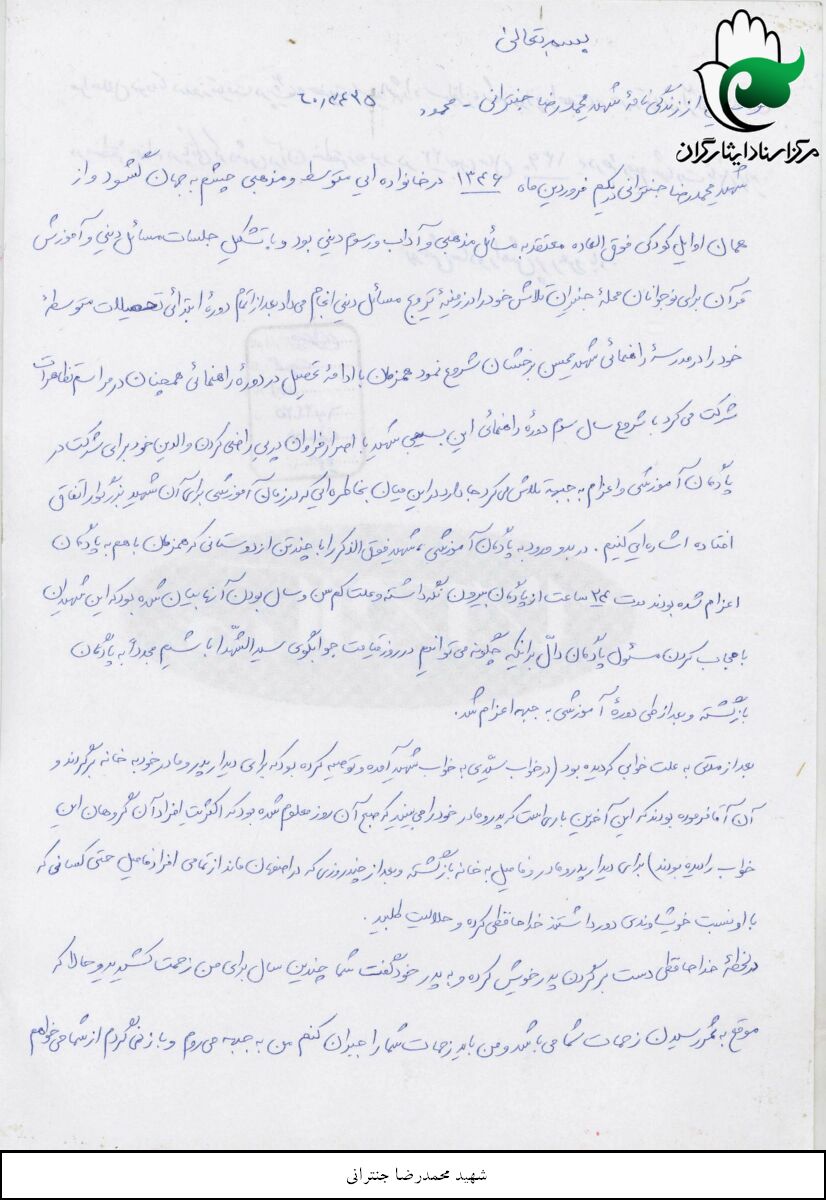 بسمه تعالی
از زندگی نامهٔ شهید محمدرضا جنترانی - محمود ۶۰/۳۴۳۵
مرکز اسناد ایثارگران
شهید محمدرضا جنترانی در یکم فروردین ماه ۱۳۴۶ در خانواده ایی متوسط و مذهبی چشم به جهان گشود و از
همان اوایل کودکی فوق العاده معتقد به مسائل مذهبی و آداب و رسوم دینی بود و با تشکیل جلسات مسائل دینی و آموزش
قرآن برای نوجوانان محلهٔ جنیران تلاش خود را در زمینهٔ ترویج مسائل دینی انجام می داد بعد از اتمام دورهٔ ابتدائی تحصیلات متوسطهٔ
خود را در مدرسهٔ راهنمائی شهید محسن بخشیان شروع نمود همزمان با ادامهٔ تحصیل در دورهٔ راهنمائی همچنان در مراسم تظاهرات
شرکت می کرد با شروع سال سوم دورهٔ راهنمائی این بسیجی شهید با اصرار فراوان در پی راضی کردن والدین خود برای شرکت در
پادگان آموزشی و اعزام به جبهه تلاش می کرد جا دارد در این میان بخاطره ایی که در زمان آموزشی برای آن شهید بزرگوار اتفاق
افتاده اشاره ایی کنیم. در بدو ورود به پادگان آموزشی، شهید فوق الذکر را با چند تن از دوستانی که همزمان با هم به پادگان
اعزام شده بودند مدت ۲۴ ساعت از پادگان بیرون نگه داشته و علت کم سن و سال بودن آنها بیان شده بود که این شهید با
مجاب کردن مسئول پادگان دالّ بر اینکه چگونه می توانیم در روز قیامت جوابگوی سید الشهّدا باشیم مجدداً به پادگان
بازگشته و بعد از طی دورهٔ آموزشی به جبهه اعزام شد.
بعد از مدتی به علت خوابی که دیده بود (در خواب سیّدی به خواب شهید آمده و توصیه کرده بود که برای دیدار پدر و مادر خود به خانه برگردند و
آن آقا فرموده بودند که این آخرین باری است که پدر و مادر خود را می بینید که صبح آن روز معلوم شده بود که اکثریت افراد آن گروهان این
خواب را دیده بودند) برای دیدار پدر و مادر و فامیل به خانه بازگشته و بعد از چند روزی که در اصفهان ماند از تمامی افراد فامیل حتی کسانی که
با او نسبت خویشاوندی دور داشتند خداحافظی کرده و حلالیت طلبید.
در لحظهٔ خداحافظی دست بر گردن پدر خویش کرده و به پدر خود گفت شما چندین سال برای من زحمت کشیدید و حالا که
موقع به ثمر رسیدن زحمات شما می باشد و من باید زحمات شما را جبران کنم من به جبهه می روم و باز نمی گردم از شما می خواهم
شهید محمدرضا جنترانی